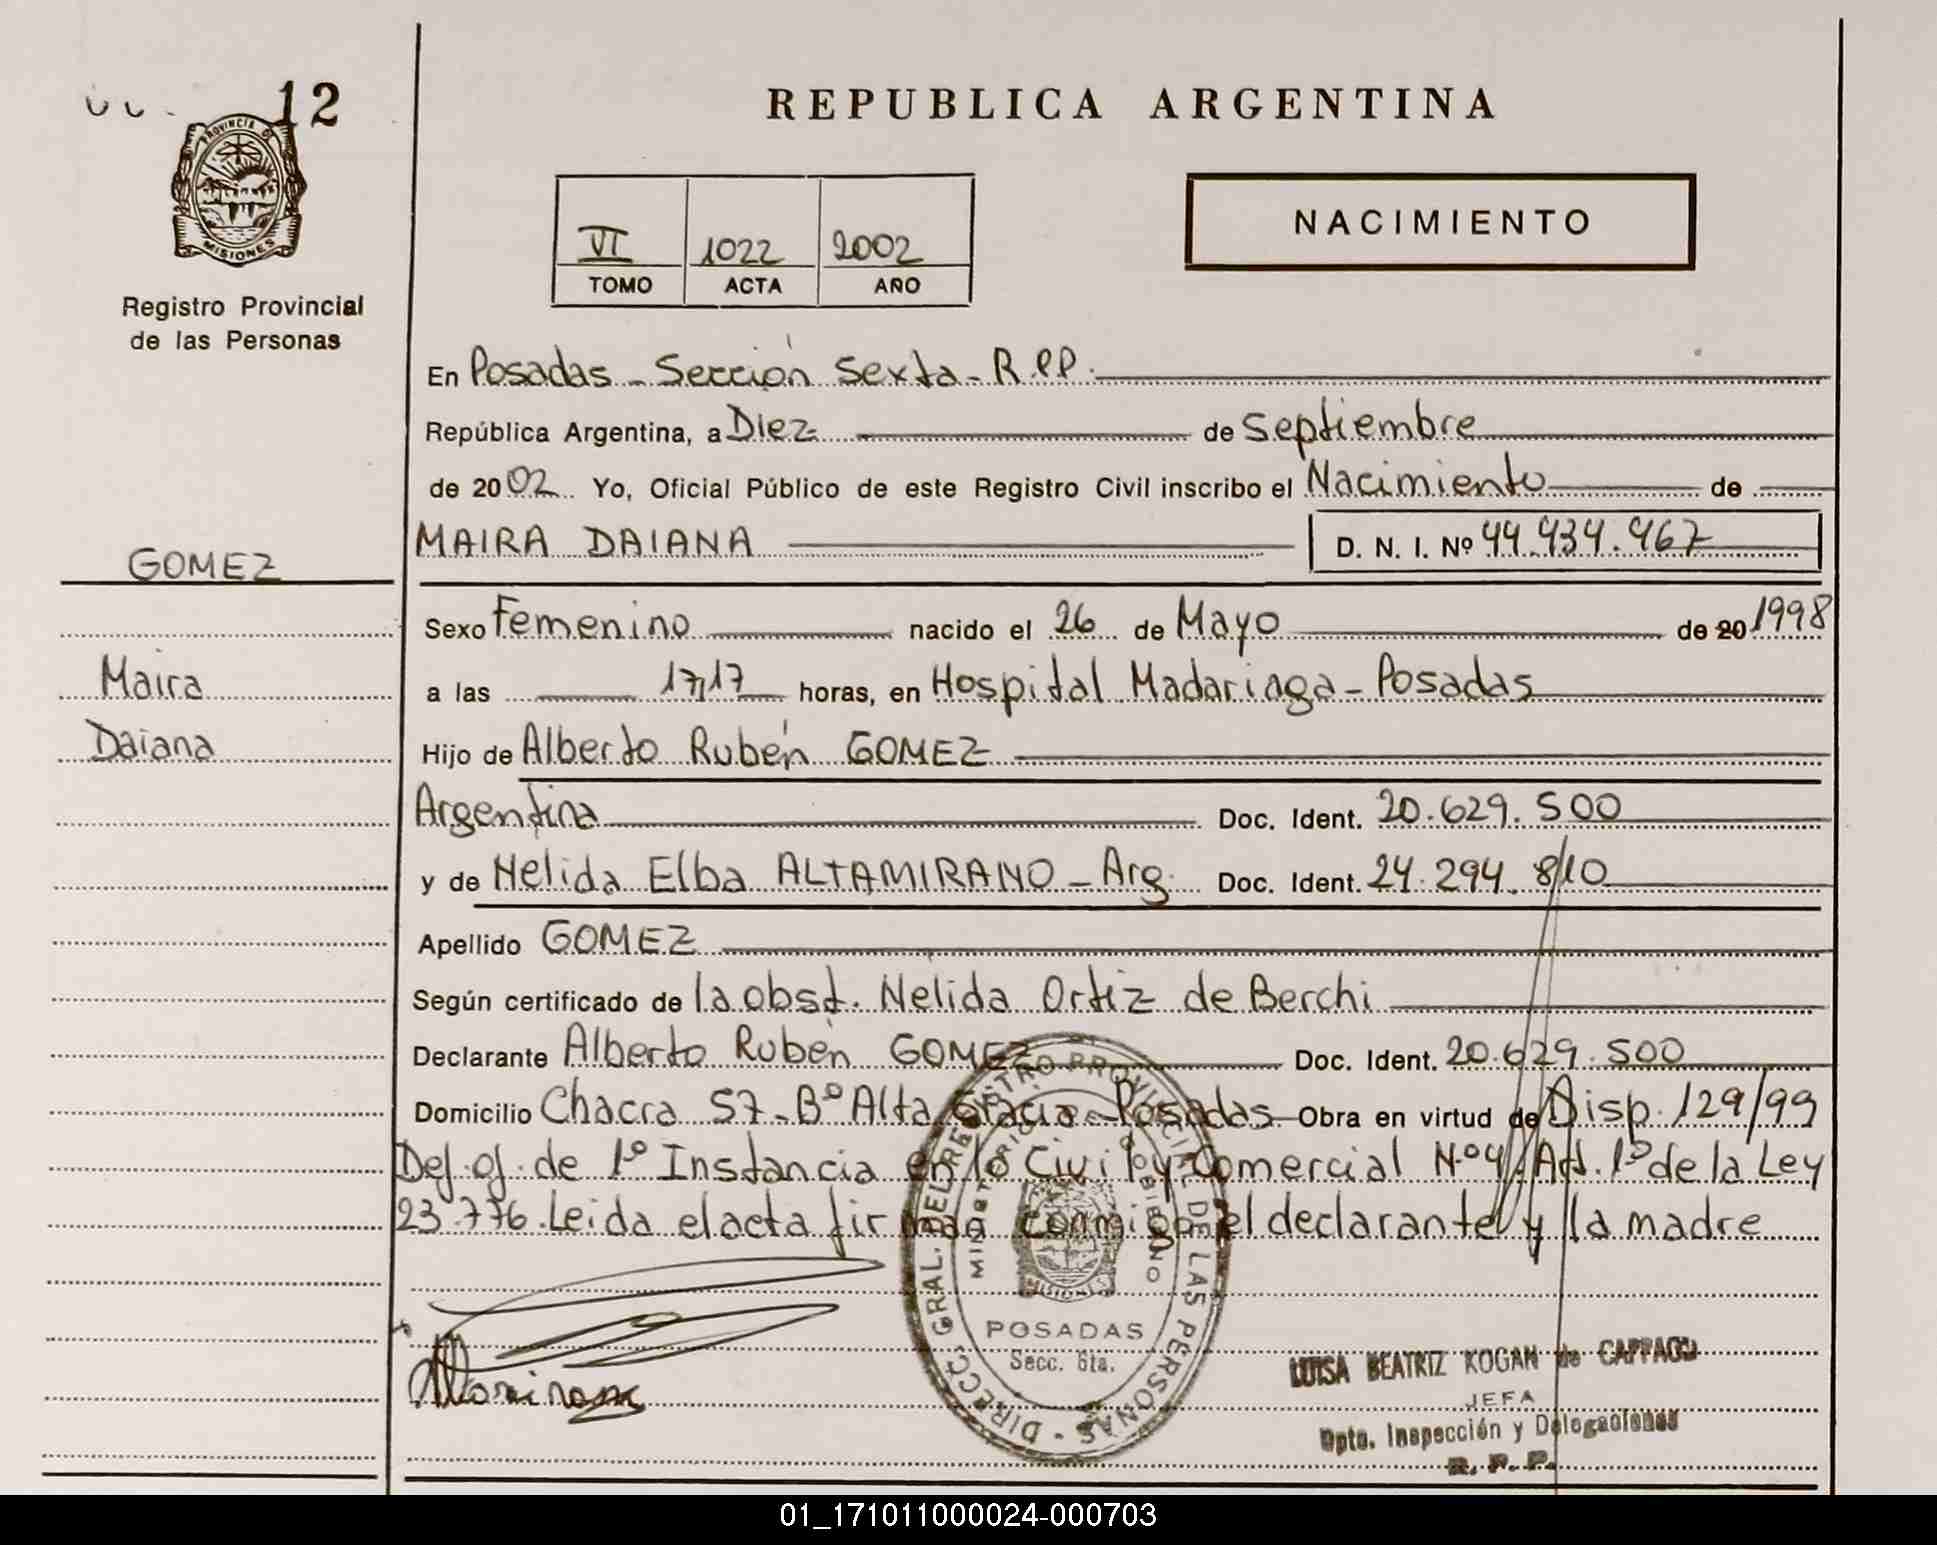 12
PROVINCIA DE
MISIONES
Registro Provincial
de las Personas
REPUBLICA ARGENTINA
VI 1022 2002
TOMO ACTA AÑO
NACIMIENTO
En Posadas - Sección Sexta - R.P.P.
República Argentina, a Diez de Septiembre
de 2002 Yo, Oficial Público de este Registro Civil inscribo el Nacimiento de
GOMEZ
MAIRA DAIANA D. N. I. Nº 44.934.967
Sexo Femenino nacido el 26 de Mayo de 20 1998
Maira
a las 17,17 horas, en Hospital Madariaga - Posadas
Daiana
Hijo de Alberto Rubén GOMEZ
Argentina Doc. Ident. 20.629.500
y de Nelida Elba ALTAMIRANO - Arg. Doc. Ident. 24.294.810
Apellido GOMEZ
Según certificado de la obst. Nelida Ortiz de Berchi
Declarante Alberto Rubén GOMEZ Doc. Ident. 20.629.500
Domicilio Chacra 57 - Bº Alta Gracia - Posadas - Obra en virtud de Disp. 129/99
Def. of. de 1º Instancia en lo Civil y Comercial N.º 4. Art. 1º de la Ley
23.776. Leida el acta firman conmigo el declarante y la madre
DIRECC. GRAL. DEL REGISTRO PROVINCIAL DE LAS PERSONAS
MINISTERIO DE GOBIERNO
MISIONES
POSADAS
Secc. 6ta.
LUISA BEATRIZ KOGAN de
JEFA
Dpto. Inspección y Delegaciones
R. P. P.
01_171011000024-000703